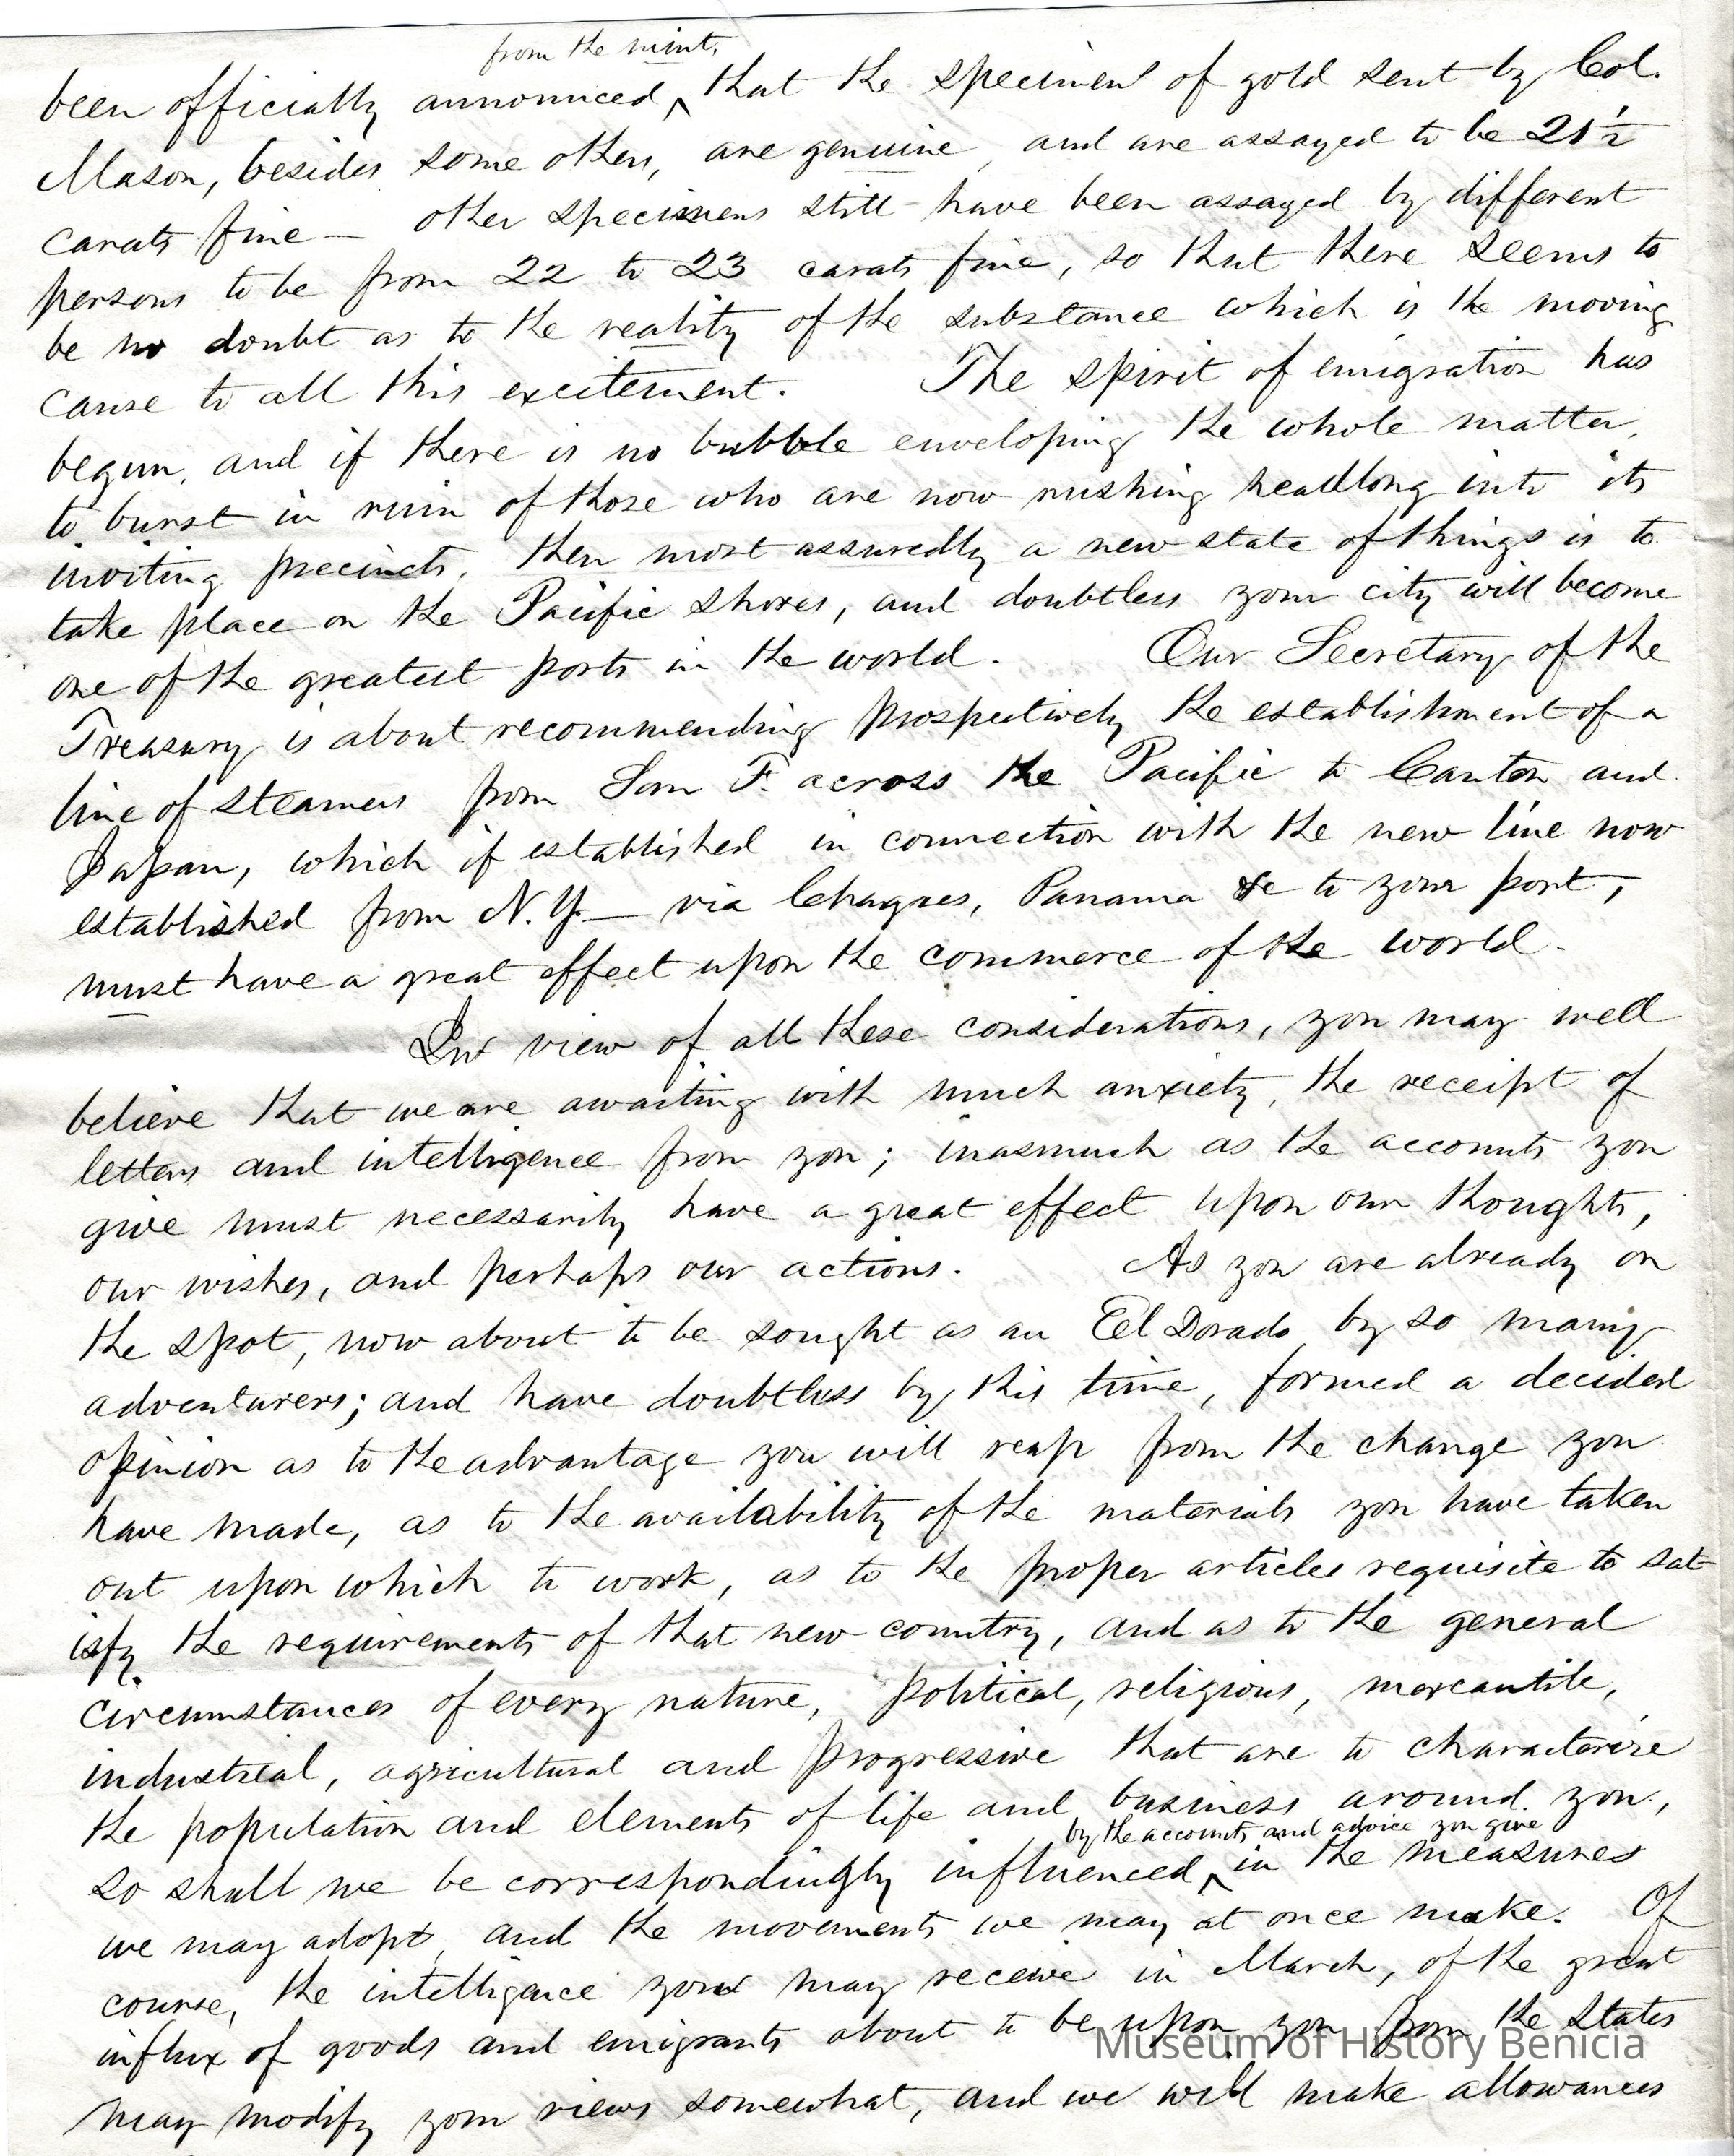 from the mint,
been officially announced ‸ that the specimen of gold sent by Col.
Mason, besides some others, are genuine, and are assayed to be 21½
carats fine — other specimens still have been assayed by different
persons to be from 22 to 23 carats fine, so that there seems to
be no doubt as to the reality of the substance which is the moving
cause to all this excitement. The spirit of emigration has
begun, and if there is no bubble enveloping the whole matter,
to burst in ruin of those who are now rushing headlong into its
inviting precincts, then most assuredly a new state of things is to
take place on the Pacific shores, and doubtless your city will become
one of the greatest ports in the world. Our Secretary of the
Treasury is about recommending prospectively the establishment of a
line of steamers from San F. across the Pacific to Canton and
Japan, which if established in connection with the new line now
established from N.Y. — via Chagres, Panama &c to your port,
must have a great effect upon the commerce of the world.
In view of all these considerations, you may well
believe that we are awaiting with much anxiety, the receipt of
letters and intelligence from you; inasmuch as the accounts you
give must necessarily have a great effect upon our thoughts,
our wishes, and perhaps our actions. As you are already on
the spot, now about to be sought as an El Dorado by so many
adventurers; and have doubtless by this time, formed a decided
opinion as to the advantage you will reap from the change you
have made, as to the availability of the materials you have taken
out upon which to work, as to the proper articles requisite to sat
isfy the requirements of that new country, and as to the general
circumstances of every nature, political, religious, mercantile,
industrial, agricultural and progressive that are to characterize
the population and elements of life and business around you,
by the accounts and advice you give
so shall we be correspondingly influenced ‸ in the measures
we may adopt, and the movements we may at once make. Of
course, the intelligence you may receive in March, of the great
influx of goods and emigrants about to be upon you from the States
may modify your views somewhat, and we will make allowances
Museum of History Benicia